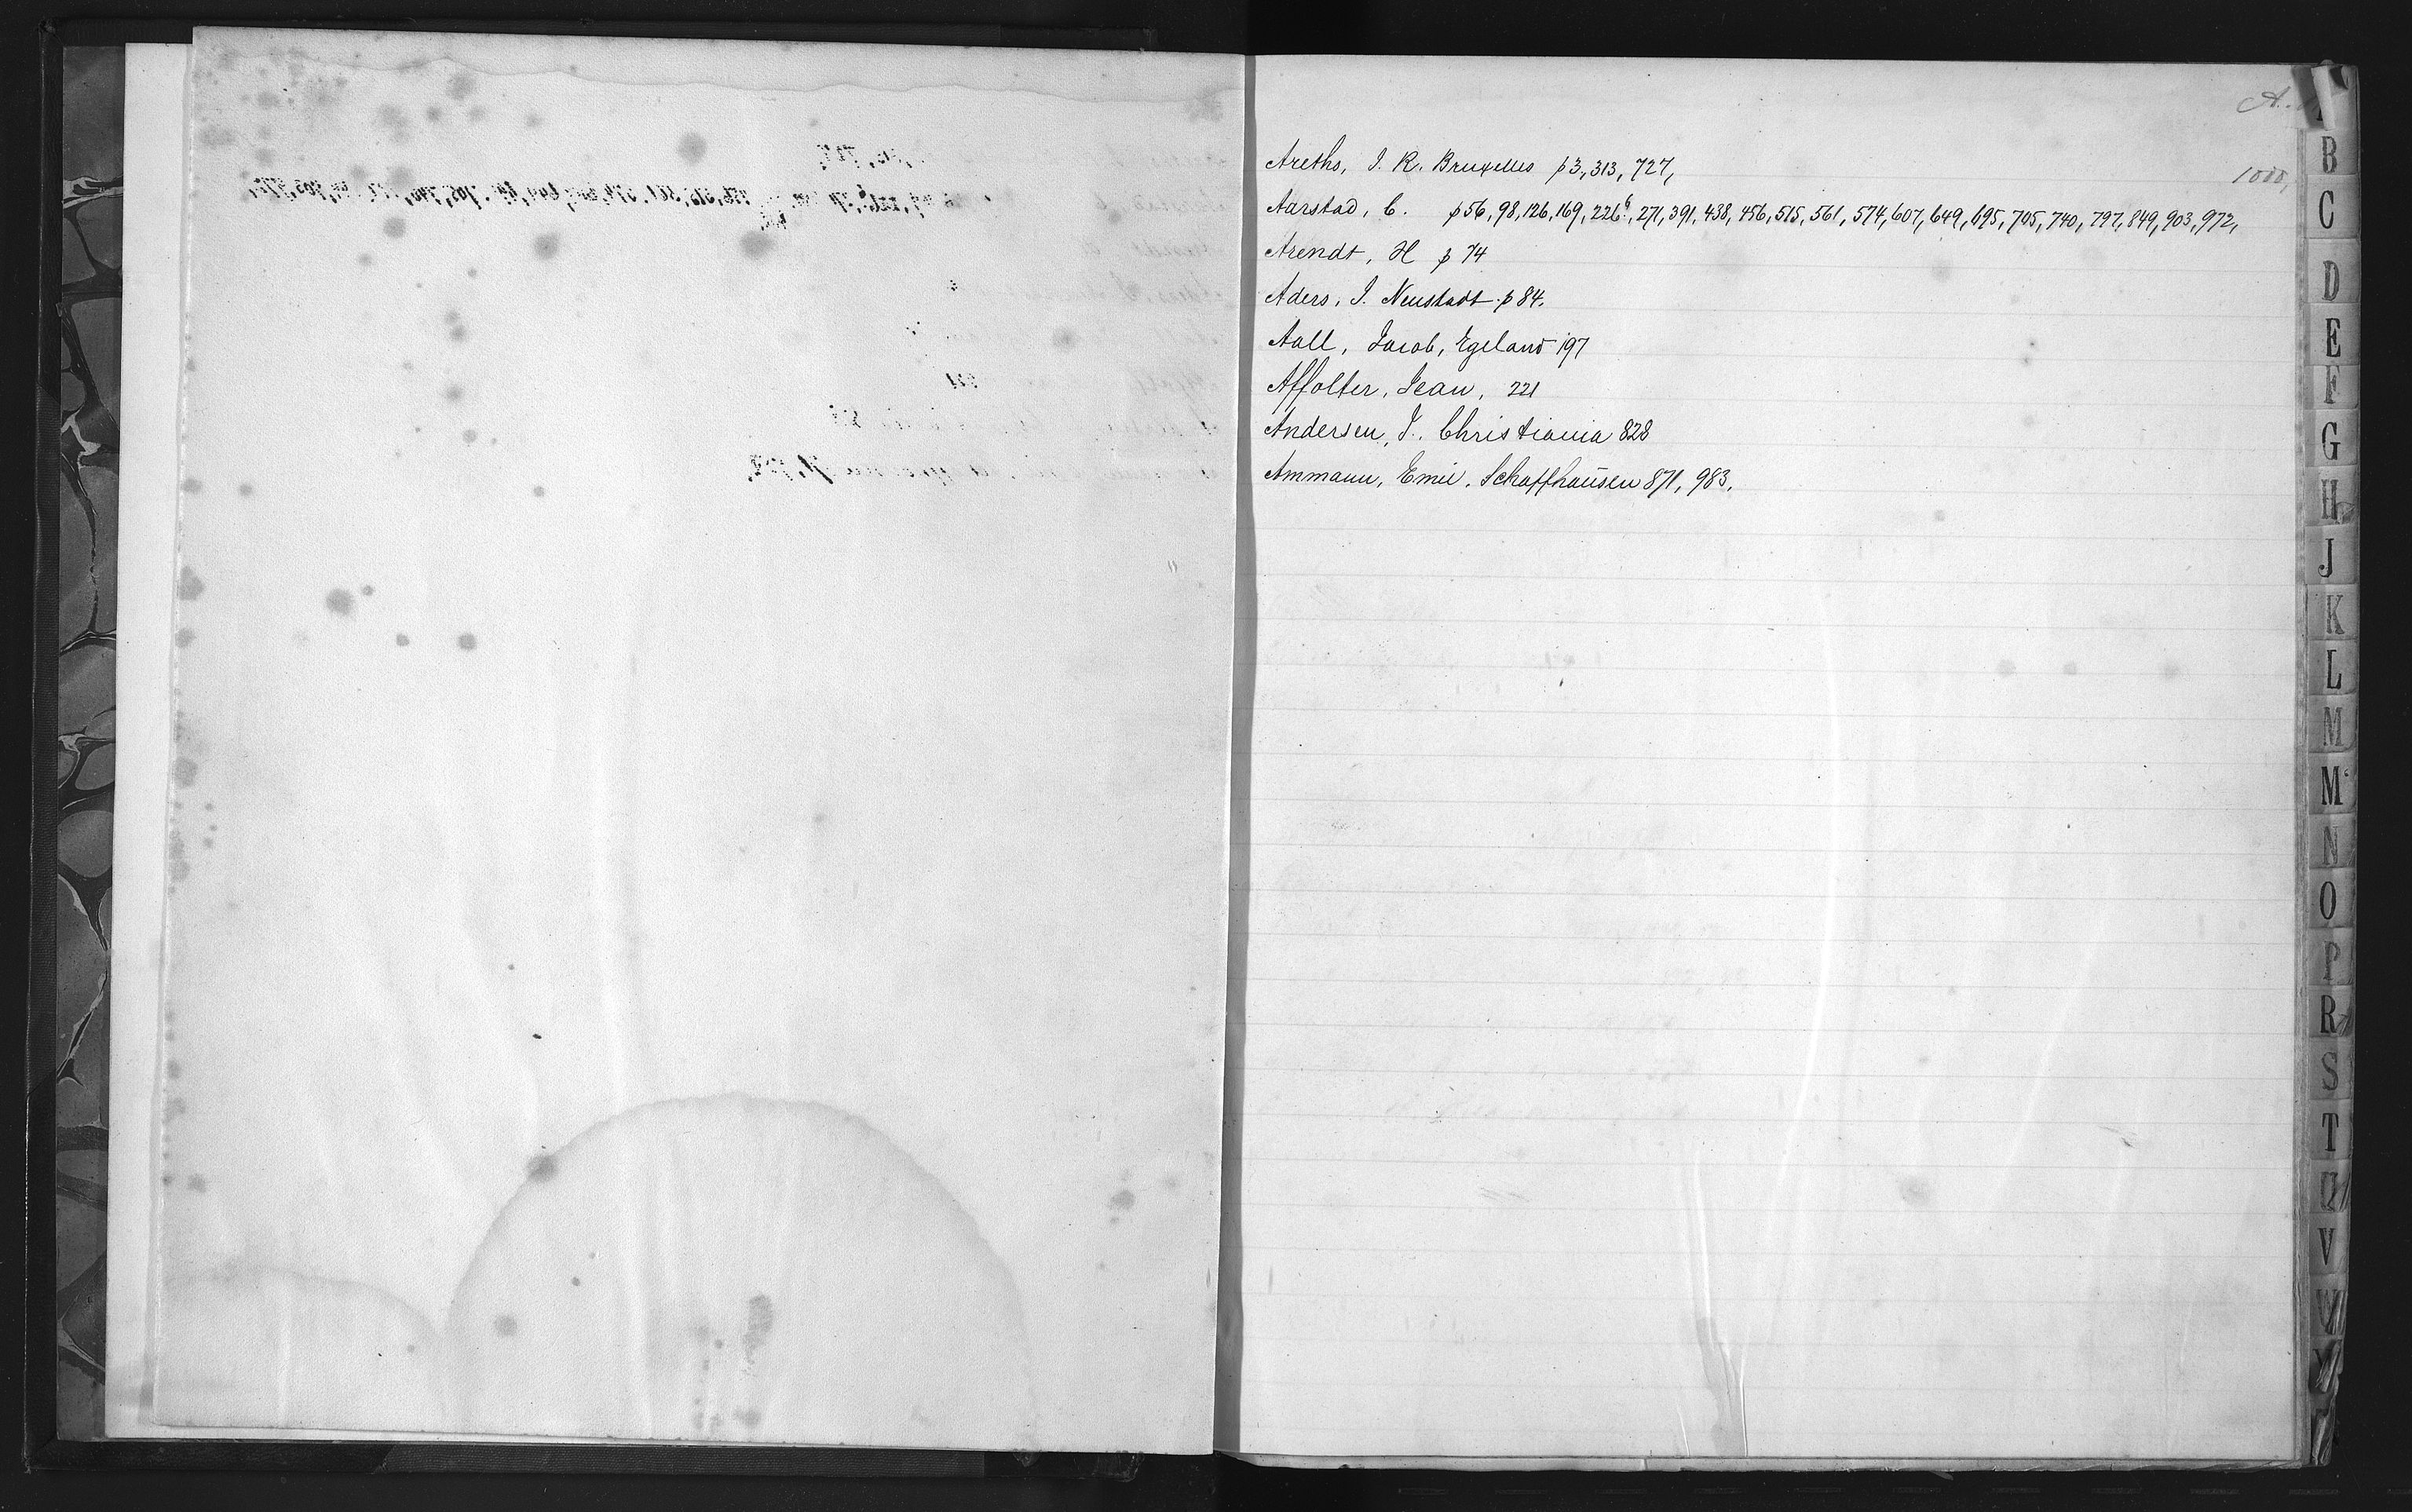 A.
Areths, J. R. Bruxelles p 3, 313, 727,
1000,
Aarstad, C. p 56, 98, 126, 169, 226, 271, 391, 438, 456, 515, 561, 574, 607, 649, 695, 705, 740, 797, 849, 903, 972,
Arendt, H p 74
Aders, J. Neustadt p 84.
Aall, Jacob, Egeland 197
Affolter, Jean, 221
Andersen, J. Christiania 828
Ammann, Emil. Schaffhausen 871, 983.
B
C
D
E
F
G
H
J
K
L
M
M
N
O
P
R
S
T
U
V
W